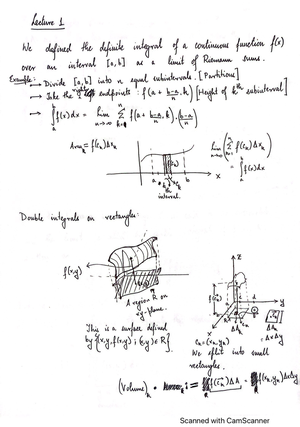 Lecture 1
We defined the definite integral of a continuous function f(x)
over an interval [a,b] as a limit of Riemann sums.
Example:
→ Divide [a,b] into n equal subintervals. [Partitions]
→ Take the right endpoints: f(a + b-a/n · k) [Height of kth subinterval]
→ ∫_a^b f(x)dx = lim_{n→∞} Σ_{k=1}^n f(a + b-a/n · k) · (b-a/n)
Area = f(c_k) Δx_k
lim_{n→∞} (Σ f(c_k) Δx_k)
= ∫_a^b f(x)dx
a b x
interval.
Double integrals on rectangles:
f(x,y)
A region R on
xy-plane.
z
y
x
This is a surface defined
by {(x,y,f(x,y)); (x,y) ∈ R}
c_k = (x_k, y_k)
= ΔxΔy
We split into small
rectangles.
(Volume)_k := f(c_k) ΔA = f(x_k, y_k) ΔxΔy
Scanned with CamScanner